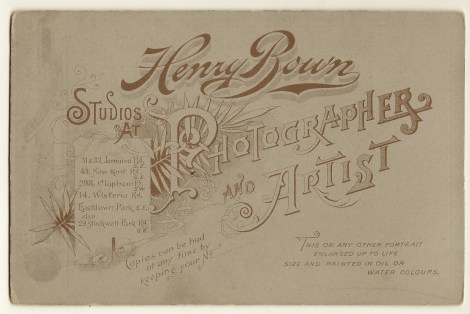 Henry Bown
Photographer
and Artist
Studios
At
31 & 33, Jamaica Rd.
S.E.
New Kent Rd.
S.E.
Clapham
14, Wisteria Rd.
Park, S.E.
also
29, Stockwell Park Rd.
S.W.
Copies can be had
at any time by
keeping your No
This or any other portrait
enlarged up to life
size and painted in oil or
water colours.